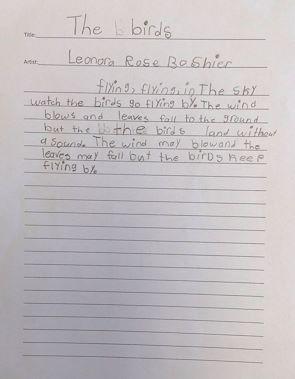 Title: The birds
Artist: Leonora Rose Bashier
flying, flying, in The sky
watch the birds go flying by. The wind
blows and leaves fall to the ground
but the the birds land without
a sound. The wind may blowand the
leaves may fall but the birds keep
flying by.